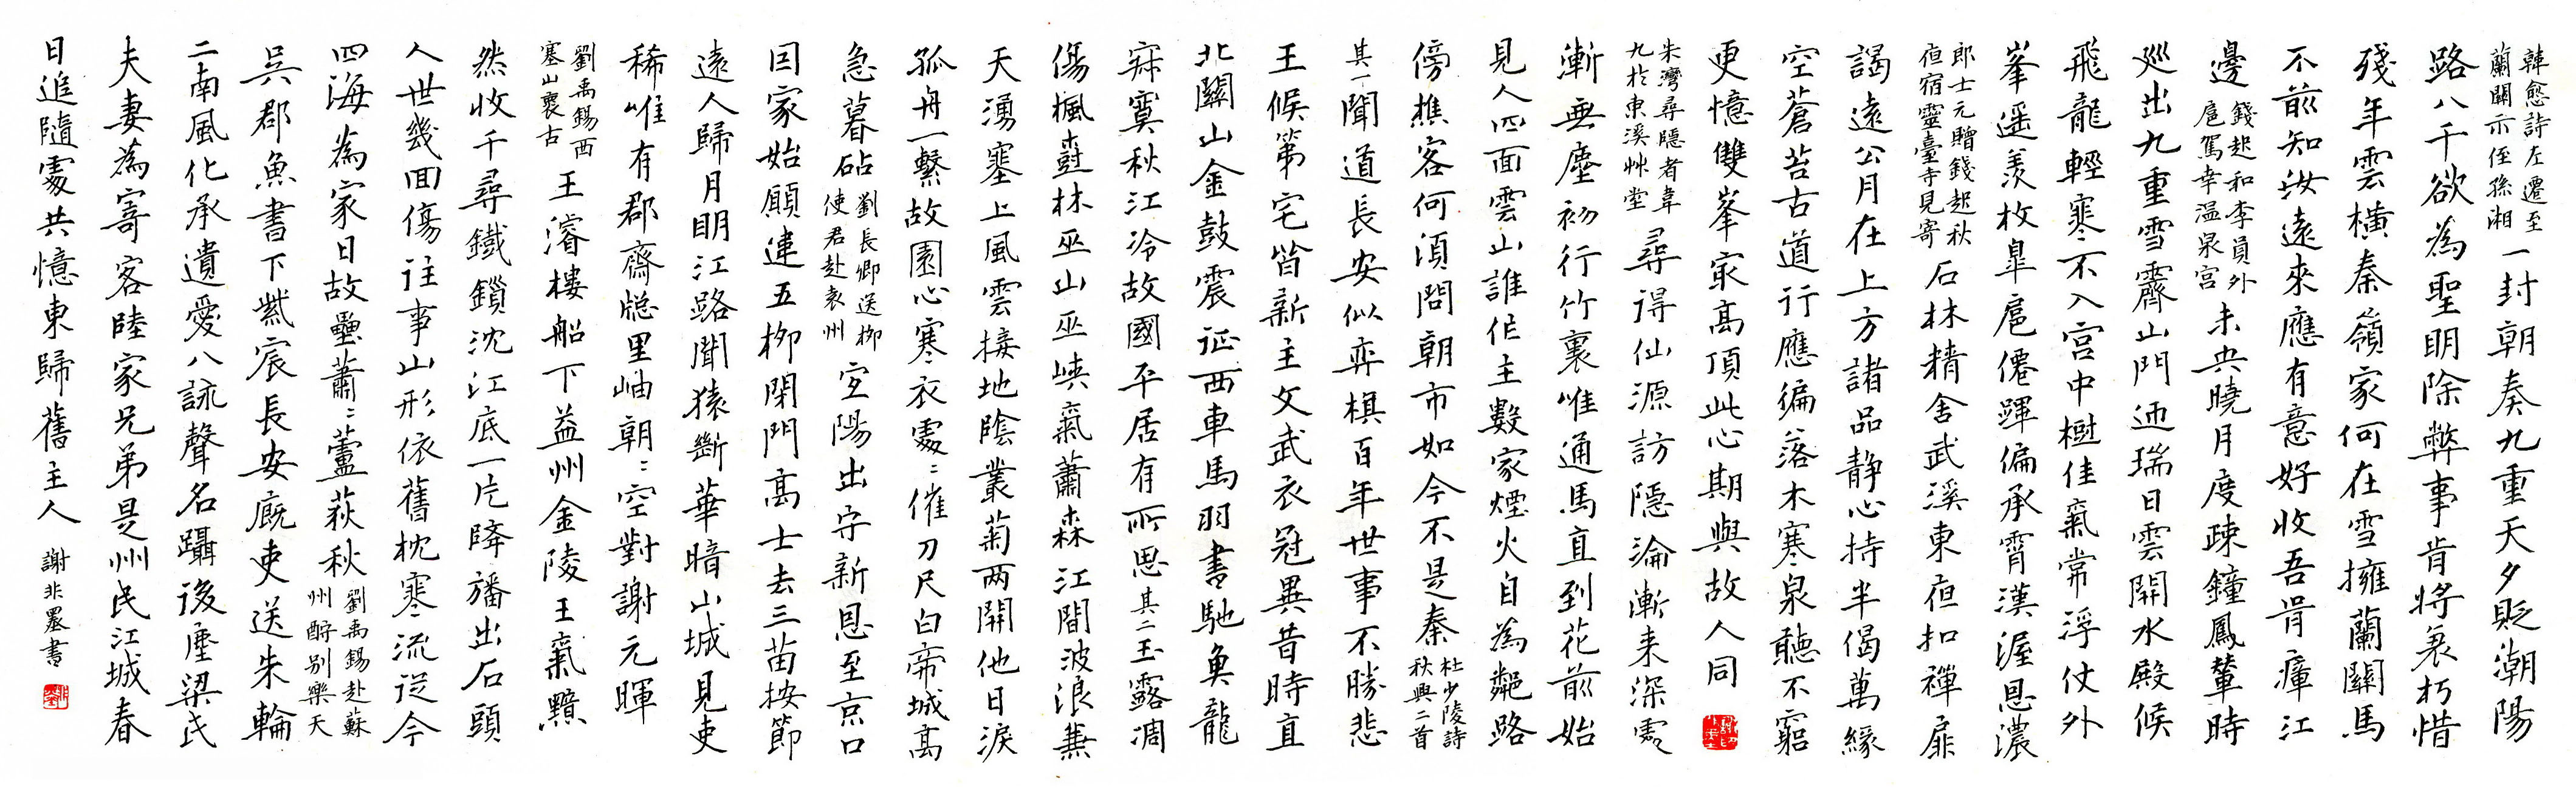 韓愈詩左遷至
蘭關示侄孫湘
一封朝奏九重天夕貶潮陽
路八千欲為聖明除弊事肯將衰朽惜
殘年雲橫秦嶺家何在雪擁蘭關馬
不前知汝遠來應有意好收吾骨瘴江
邊
錢起和李員外
扈駕幸溫泉宮
未央曉月度疎鐘鳳輦時
巡出九重雪霽山門迎瑞日雲開水殿候
飛龍輕寒不入宮中樹佳氣常浮仗外
峯遥羨枚皋扈僊蹕偏承霄漢渥恩濃
郎士元贈錢起秋
亱宿靈臺寺見寄
石林精舍武溪東亱扣禪扉
謁遠公月在上方諸品静心持半偈萬緣
空蒼苔古道行應徧落木寒泉聽不窮
更憶雙峯最高頂此心期與故人同
朱灣尋隱者韋
九於東溪艸堂
尋得仙源訪隱淪漸来深處
漸無塵初行竹裏唯通馬直到花前始
見人四面雲山誰作主數家煙火自為鄰路
傍樵客何須問朝市如今不是秦
杜少陵詩
秋興二首
其一聞道長安似弈棋百年世事不勝悲
王候第宅皆新主文武衣冠異昔時直
北關山金鼓震征西車馬羽書馳魚龍
寂寞秋江冷故國平居有所思其二玉露凋
傷楓樹林巫山巫峽氣蕭森江間波浪兼
天湧塞上風雲接地陰叢菊两開他日淚
孤舟一繫故園心寒衣處〻催刀尺白帝城高
急暮砧
劉長卿送柳
使君赴袁州
宜陽出守新恩至京口
因家始願違五柳閉門高士去三苗按節
遠人歸月明江路聞猿斷華暗山城見吏
稀唯有郡齋窗里岫朝〻空對謝元暉
劉禹錫西
塞山褱古
王濬樓船下益州金陵王氣黯
然收千尋鐵鎖沈江底一片降旛出石頭
人世幾回傷往事山形依舊枕寒流從今
四海為家日故壘蕭〻蘆荻秋
劉禹錫赴蘇
州酧别樂天
吳郡魚書下紫宸長安廄吏送朱輪
二南風化承遺愛八詠聲名躡後塵梁氏
夫妻為寄客陸家兄弟是州民江城春
日追隨處共憶東歸舊主人
謝非墨書